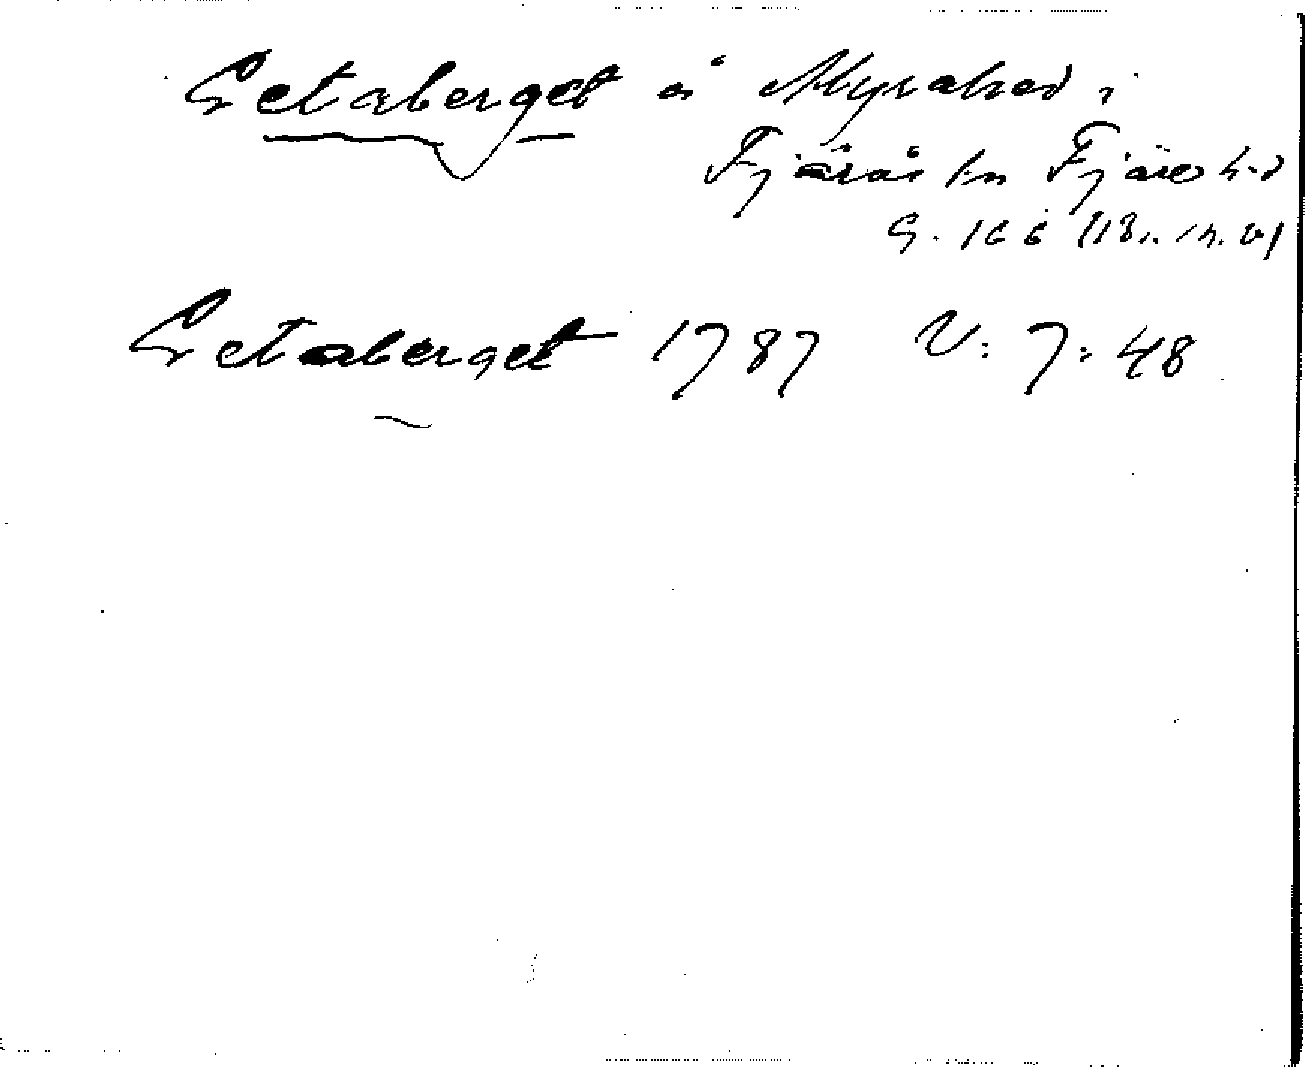 Getaberget å Myrahed i
Fjärås sn Fjäre hd
G. 166
Getaberget 1787 V: 7: 48